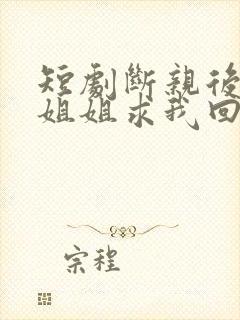 短劇斷親後
姐姐求我回
宗程